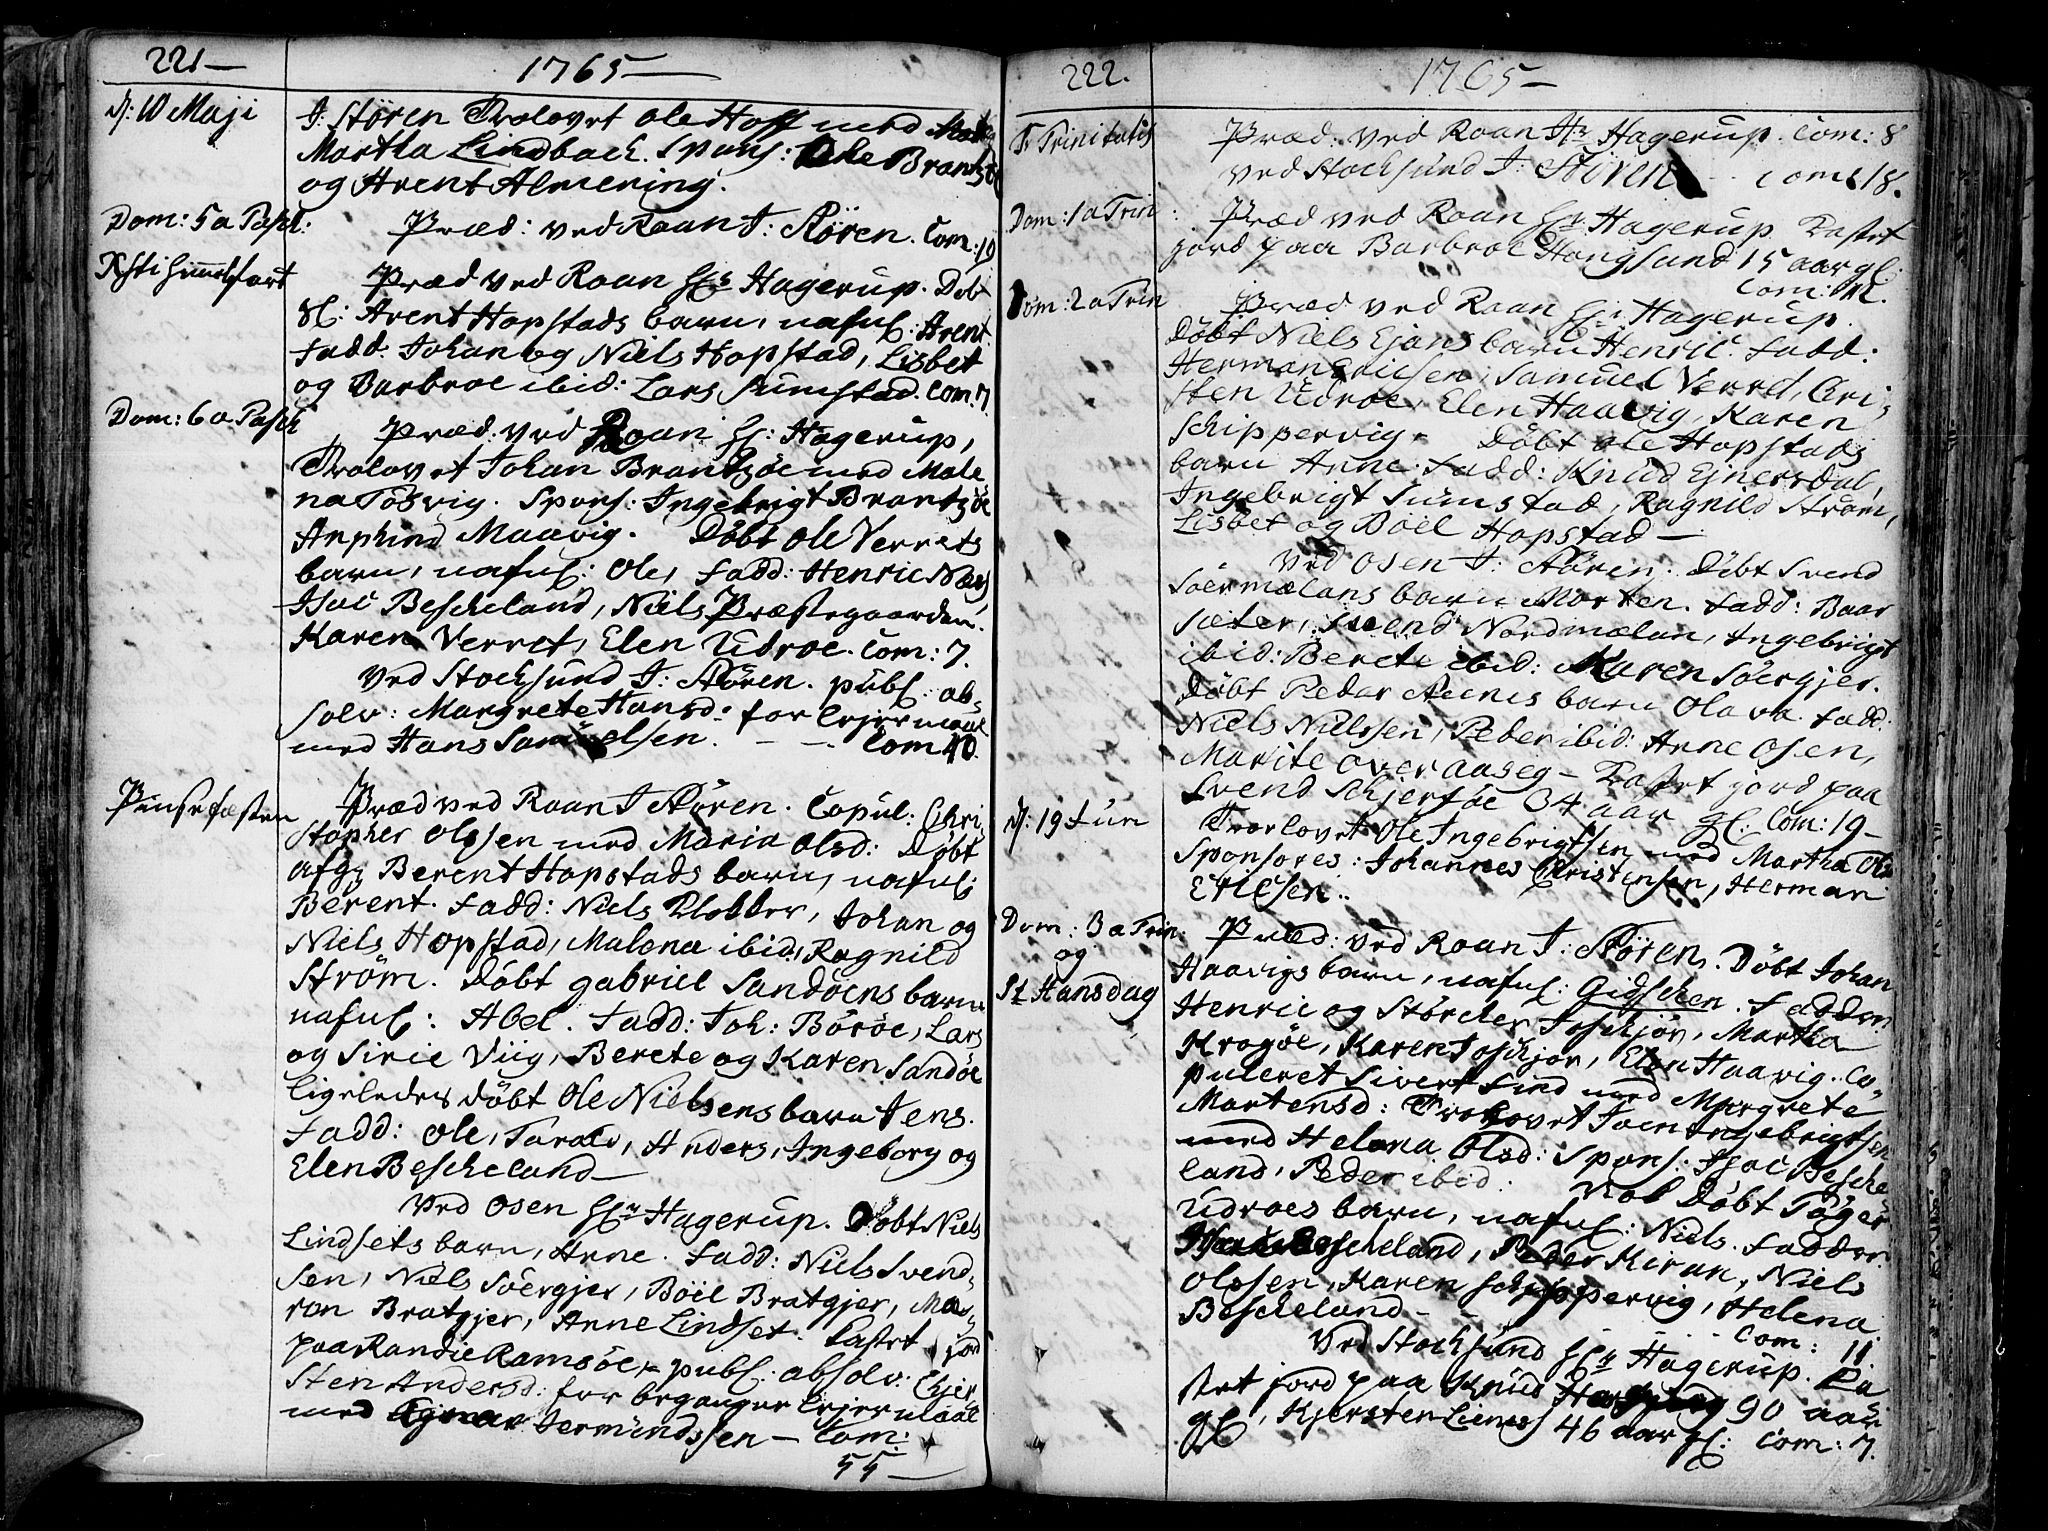 221
1765
d: 10 Maji
J. Stören Trolovet Ole Hoff med
Martha Lindback. Spons: Ole Brantzöe
og Arent Almening.
Dom: 5 a Pasch:
Præd: ved Roan J: Stören. Com: 19
Xsti Himmelfart
Præd ved Roan Hr Hagerup. Döbt
Sl: Arent Hopstads barn, nafnl: Arent.
Fadd. Johan og Niels Hopstad, Lisbet
og Barbroe ibid: Lars Sumstad. Com. 7.
Dom: 6 a Pasch
Præd: ved Roan H: Hagerup,
Trolovet Johan Brantzöe med Male
na Tösvig. Spons: Ingebrigt Brantzöe
Anphind Maavig. Döbt Ole Verrets
barn, nafnl: Ole, Fadd: Henric Næs
Isac Bescheland, Niels Præstegaarden
Karen Verret, Elen Udroe. Com: 7.
Ved Stocksund J: Stören. publ: ab-
solv: Margrete Hansd: for Lejermaal
med Hans Samuelsen. - - Com 40.
Pinsefæsten
Præd ved Roan J Stören. Copul: Chri-
stopher Olssen med Maria Olsd: Döbt
afg: Berent Hopstads barn, nafnl:
Berent. Fadd: Niels Klobber, Johan og
Niels Hopstad, Malena ibid, Ragnild
Ström. Döbt gabriel Sandöens barn
nafnl: Abel. Fadd: Joh: Böröe, Lars
og Sirie Viig, Berete og Karen Sandöe
ligeledes döbt Ole Nielsens barn Jens.
Fadd: Ole, Tarald, Anders, Ingeborg og
Elen Bescheland
Ved Osen Hr Hagerup. Döbt Niels
Lindsets barn, Arne. Fadd: Niels Svend-
sen, Niels Söergjer, Böel Bratgjer, Ma-
ren Bratgjer, Anne Lindset. Kastet jord
paa Randie Ramsöe, publ: absolv: Chjer
sten Andersd: for begangne Lejermaal
med Jermundssen — Com:
55
222.
1765
F. Trinitatis
Præd: ved Roan Hr Hagerup. Com: 8
ved Stocksund J: Stören - - Com: 18.
Dom: 1 a Trin:
Præd ved Roan Hr Hagerup. Kastet
jord paa Barbroe Hongsund 15 aar gl:
Com: 12.
Dom: 2 a Trin
Præd ved Roan Hr Hagerup.
Döbt Niels Ejans barn Henric. Fadd:
Herman Ericsen, Samuel Verret, Chri-
sten Udroe, Elen Haavig, Karen
Schippervig. Döbt Ole Hopstads
barn Anne. Fadd: Knud Ejnersdal,
Ingebrigt Sumstad, Ragnild Ström,
Lisbet og Böel Hopstad —
Ved Osen J: Stören. Döbt Svend
Söermælans barn Morten. Fadd: Baar
Sæter, Svend Nordmælan, Ingebrigt
ibid: Berete ibid: Karen Söergjer.
Döbt Peder Steenes barn Olava. Fadd:
Niels Nielssen, Peder ibid: Anne Osen,
Marite overaaseg — Kastet jord paa
Svend Schjerföe 34 aar gl: Com: 19 —
d: 19 Jun
Trolovet Ole Ingebrigtsen med Martha Ols
Sponsores: Johannes Christensen, Herman
Ericsen.
Dom: 3 a Trin:
og
St Hansdag
Præd: ved Roan J: Stören. Döbt Johan
Haavigs barn, nafnl: Gidschen. Fadder
Henric og Störcher Joschjör, Martha
Kragöe, Karen Joschjör, Elen Haavig. Co-
puleret Sivert Lind med Margrete
Martensd: Trolovet Joen Ingebrigtsen
med Helena Olsd: Spons: Isac Besche
land, Peder ibid: Döbt Töger
Udroes barn, nafnl: Niels. Fadder
Bescheland, Peder Kiran, Niels
Olssen, Karen Schippervig, Helena
Bescheland - - Com: 11.
Ved Stocksund Hr Hagerup. Ka
stet jord paa Knud 90 aar
gl, Kjersten Lienes 46 aar gl: Com: 7.